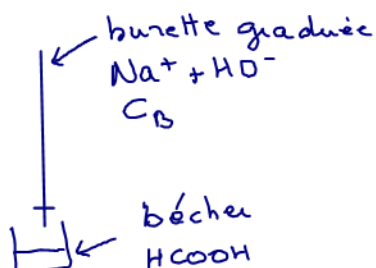 burette graduée
Na⁺ + HO⁻
C_B
bécher
HCOOH